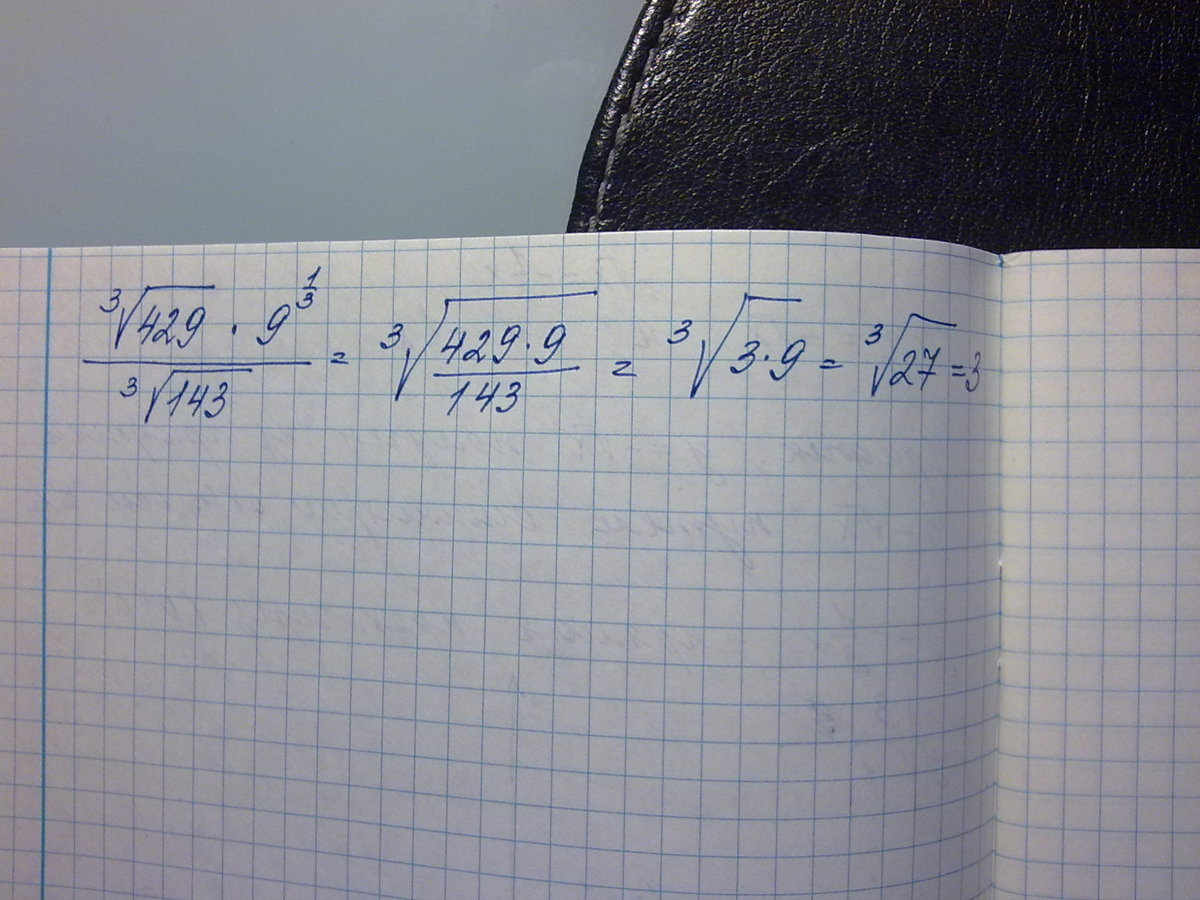 \frac{\sqrt[3]{429} \cdot 9^{\frac{1}{3}}}{\sqrt[3]{143}} = \sqrt[3]{\frac{429 \cdot 9}{143}} = \sqrt[3]{3 \cdot 9} = \sqrt[3]{27} = 3